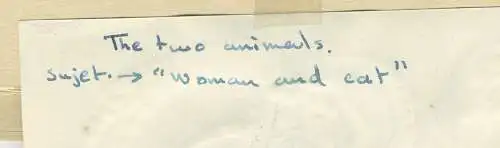 The two animals.
Sujet. → "Woman and cat"